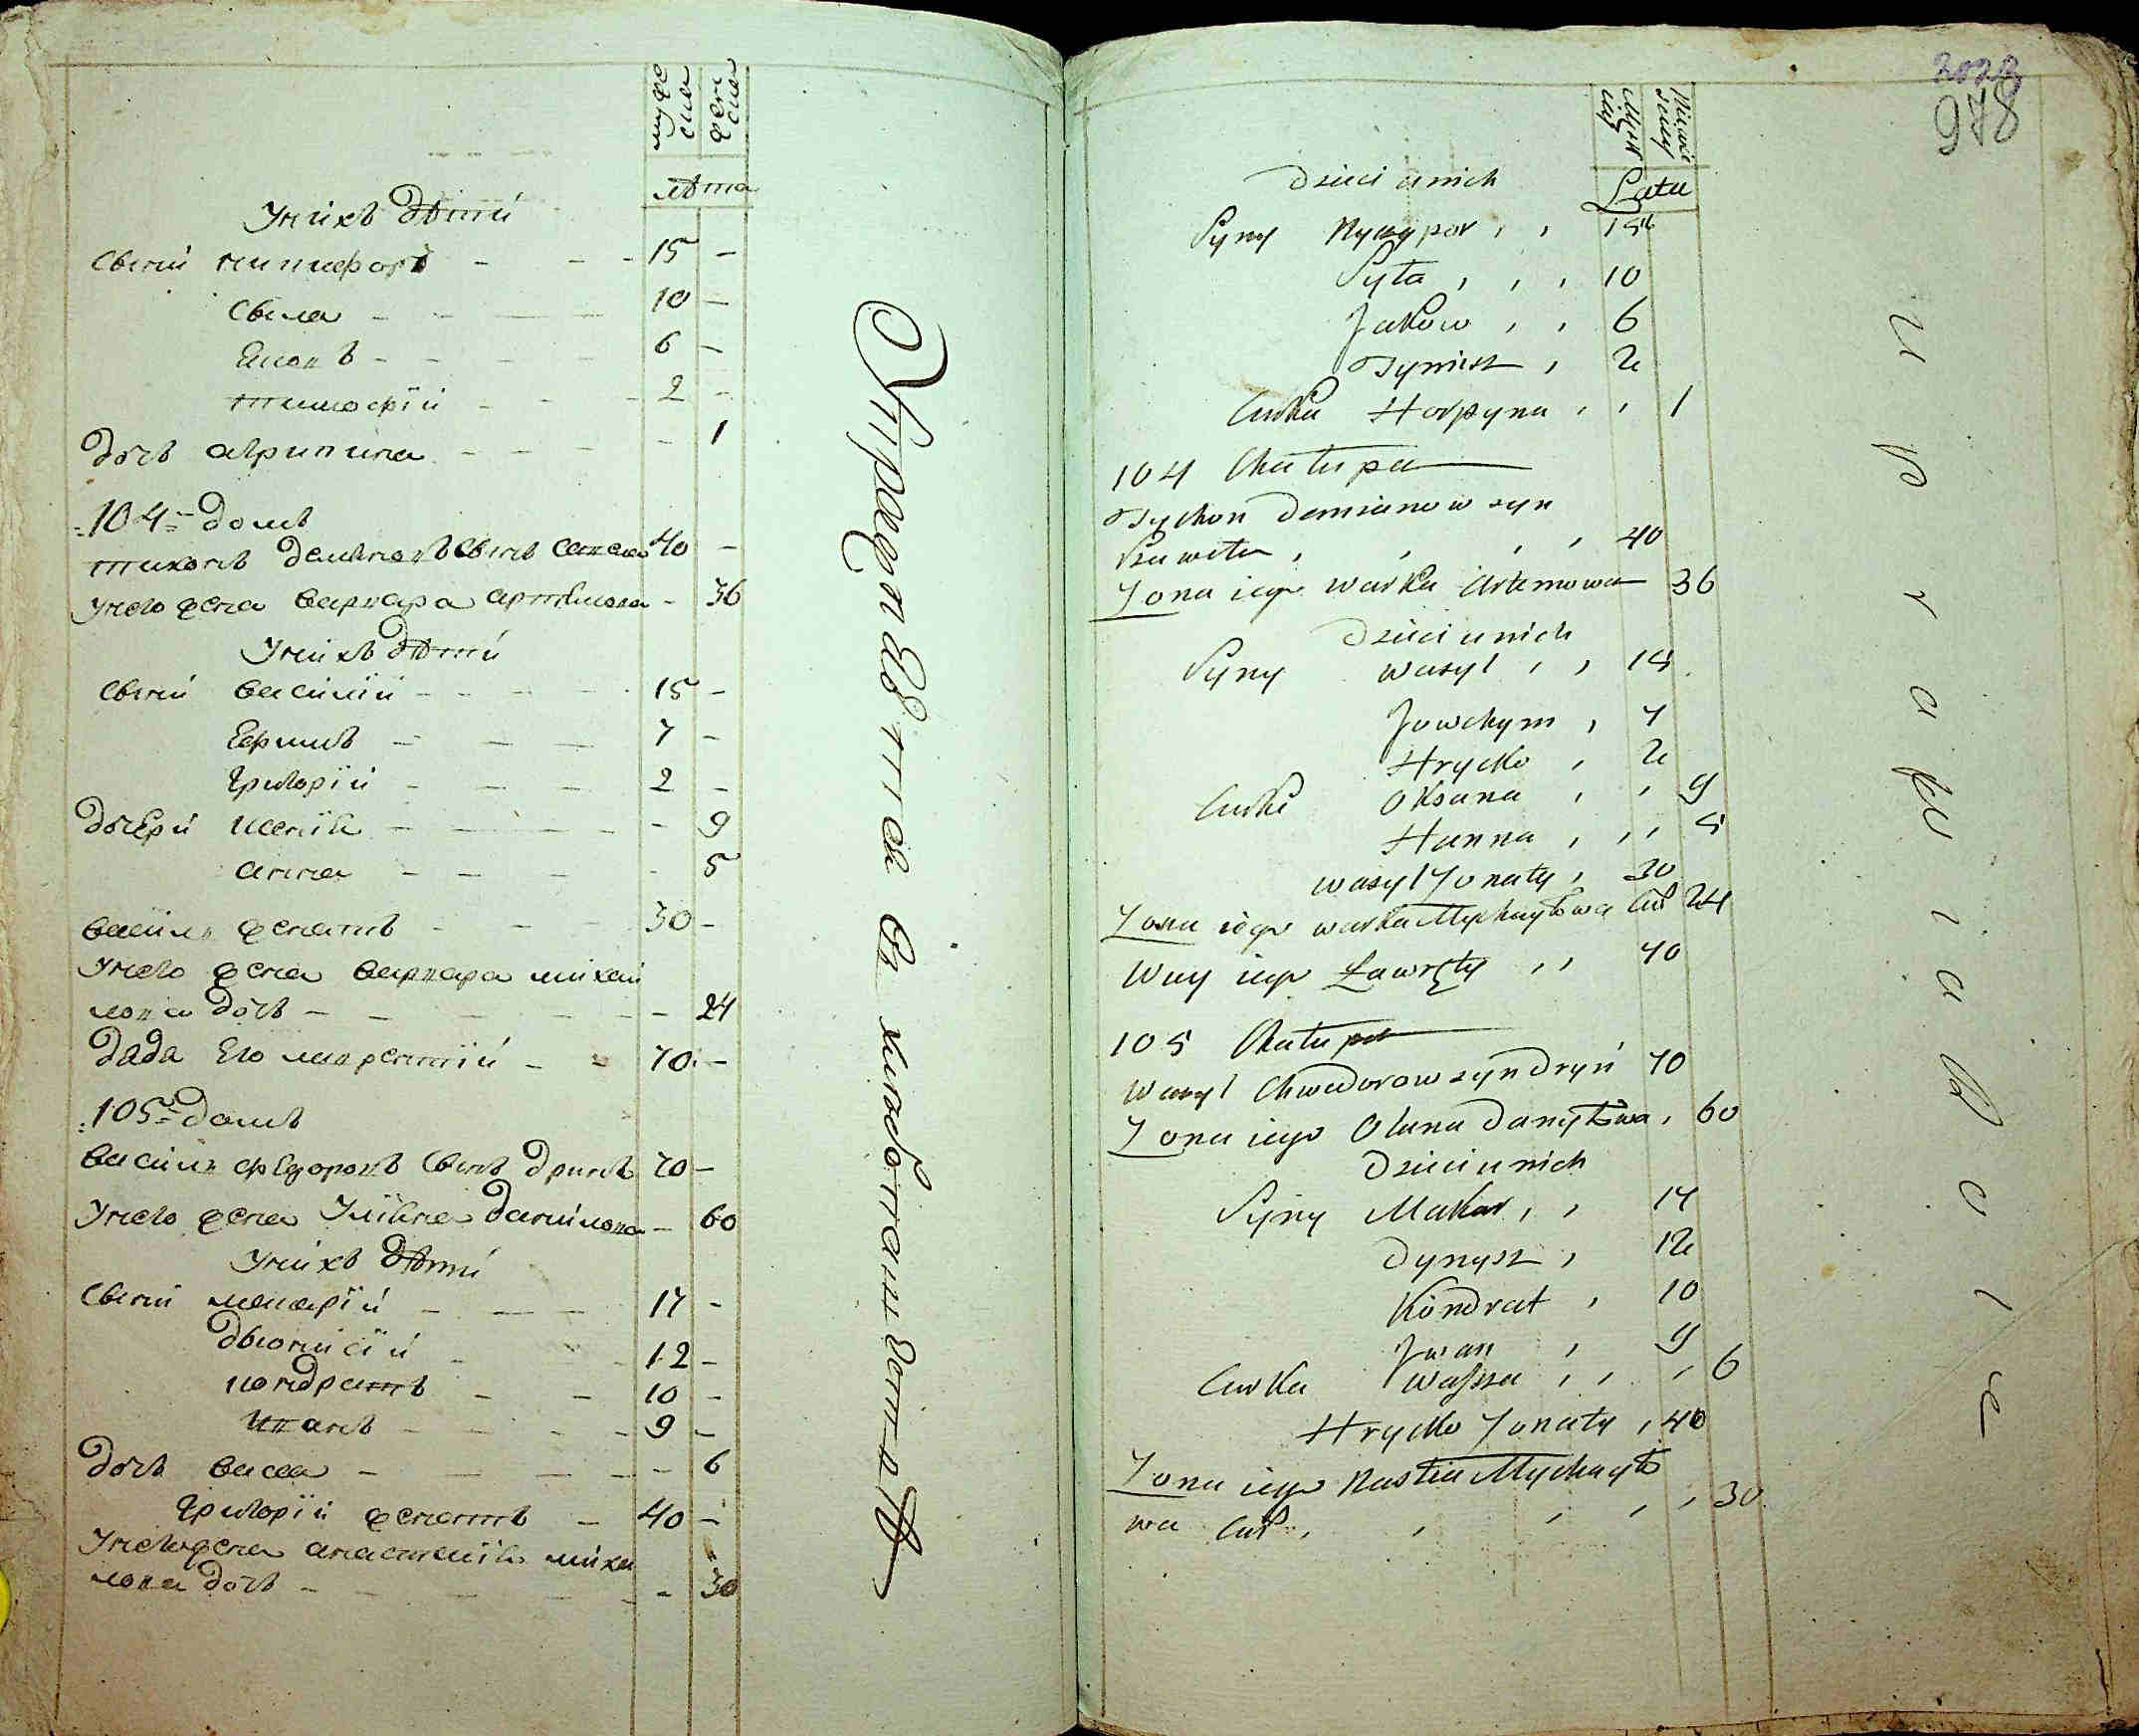 мужеска
женска
лѣта
У нихъ дѣти
Сынъ никифоръ - - - 15 -
Сила - - - - 10 -
Яковъ - - - - 6 -
тимофїй - - - 2 -
дочь агрипина - - - - 1
104 домъ
тихонъ демяновъ сынъ 40 -
У него жена варвара артемова - 36
У нихъ дѣти
Сыны василїй - - - - 15 -
Ефимъ - - - 7 -
григорїй - - - 2 -
дочери - - - - 9
анна - - - - 5
василъ женатъ - - - 30 -
У него жена варвара михаи
лова дочь - - - - - - 24
дядя Его лаврентїй - - 70 -
105 домъ
василъ федоровъ сынъ дринь 70 -
У него жена Улїяна данилова - 60
У нихъ дѣти
Сыны макарїй - - - 17 -
дионисїй - - - 12 -
кондратъ - - 10 -
Иванъ - - - - 9 -
дочь васса - - - - - 6
григорїй женатъ - 40 -
У него жена анастасїя миха
лова дочь - - - - - - 30
978
Męzka
Latu
Dzieci u nich
Syny Nyczypor , , 15
Syła , , , 10
Jakow , , 6
Tymisz , 2
Curka Horpyna , , 1
104 Chatupa
Tychon Demianow syn
, , , , 40
Zona iego Warka Artemowa 36
Dzieci u nich
Syny Wasyl , , 15
Jowchym , 7
Hrycko , 2
Curki Oksana , , 9
Hanna , , , 5
Wasyl Zonaty , 30
Zona iego Warka Mychayłowa Cur 24
Wuy iego Ławręty , , 70
105 Chatupa
Wasyl Chwedorow syn Dryń 70
Zona iego Olana Danyłowa , 60
Dzieci u nich
Syny Makar , , 17
Dynysz , 12
Kondrat , 10
Jwan , 9
Curka Wassa , , , 6
Hrycko Zonaty , 40
Zona iego Nastia Mychayło
wa Cur , , , , , 30